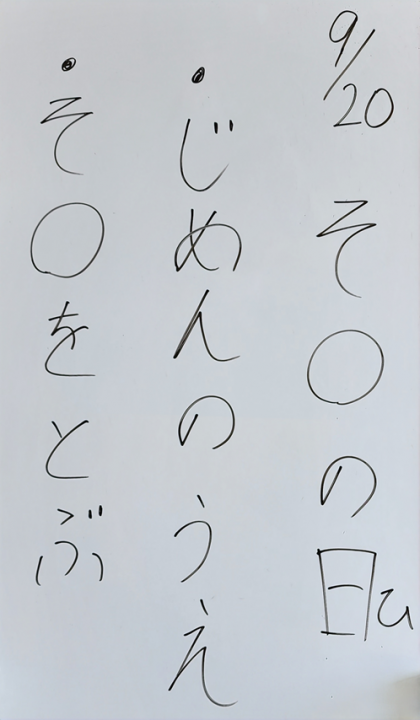 9/20 そ〇の日ひ
・じめんのうえ
・そ〇をとぶ